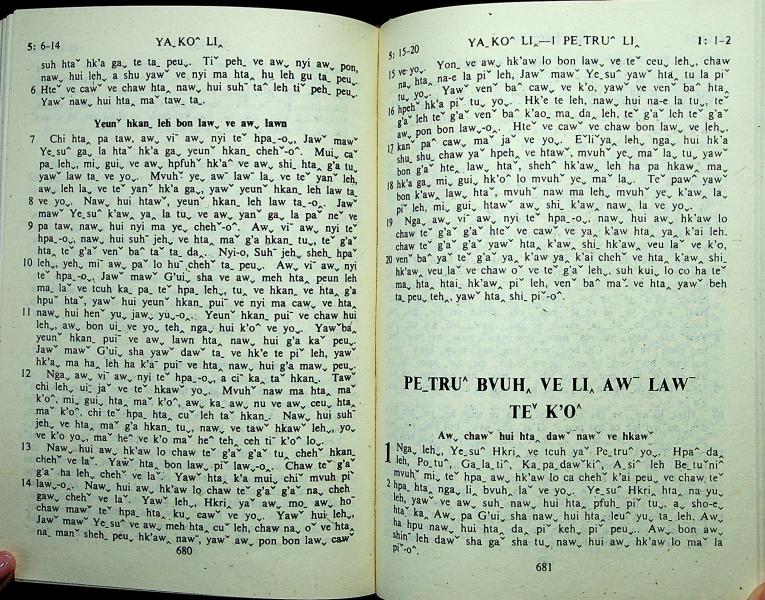 5: 6-14
YA_ KOˆ LI‸
suh htaˇ hk'a ga‸ te ta_ peu⌄. Tiˇ peh⌄ ve aw⌄ nyi aw⌄ pon‸
naw⌄ hui leh‸ a shu yawˇ ve nyi ma hta‸ hu leh gu ta_ peu⌄.
6 Hteˇ ve cawˇ ve chaw hta‸ naw⌄ hui suhˉ taˆ leh tiˇ peh⌄ peu⌄.
Yawˇ naw⌄ hui hta‸ maˇ taw_ ta_.
Yeunˇ hkan_ leh bon law⌄ ve aw⌄ lawn
7 Chi hta‸ pa taw‸ aw⌄ viˉ aw⌄ nyi teˇ hpa_-o⌄, Jawˇ mawˇ
Ye_suˆ ga‸ la htaˇ hk'a ga‸ yeunˇ hkan_ chehˇ-oˆ. Mui‸ caˇ
pa_ leh‸, mi_ gui‸ ve aw⌄ hpfuhˇ hk'aˆ ve aw⌄ shi‸ hta‸ g'a tu⌄
yawˇ law ta_ ve yo⌄. Mvuhˇ ye‸ awˇ lawˇ la⌄ ve teˇ yanˇ leh‸
aw⌄ leh la⌄ ve teˇ yanˇ hk'a ga‸, yawˇ yeunˇ hkan_ leh law ta_
8 ve yo⌄. Naw⌄ hui htawˇ, yeunˇ hkan_ leh law ta_-o⌄. Jawˇ
mawˇ Ye_suˆ k'aw‸ ya_ la tu⌄ ve aw⌄ yanˇ ga‸ la paˇ neˇ ve
9 pa taw‸ naw⌄ hui nyi ma ye‸ chehˇ-oˆ. Aw⌄ viˉ aw⌄ nyi teˇ
hpa_-o⌄, naw⌄ hui suhˉ jeh⌄ ve hta‸ maˇ g'a hkan_ tu⌄, teˇ g'aˇ
hta‸ teˇ g'aˇ venˇ baˆ taˇ ta_ da‸. Nyi-o, Suhˉ jeh⌄ sheh_ hpaˇ
10 leh‸, yeh‸ miˉ aw‸ paˇ lo huˉ chehˇ ta_ peu⌄. Aw⌄ viˉ aw⌄ nyi
teˇ hpa_-o⌄, Jawˇ mawˇ G'ui‸ sha ve aw⌄ meh hta‸ peun leh
ma_ laˇ ve tcuh ka_ pa_ teˇ hpa_ leh‸, tu‸ ve hkan‸ ve hta‸ g'a
hpuˇ htaˇ, yawˇ hui yeunˇ hkan_ puiˉ ve nyi ma caw‸ ve hta‸
11 naw⌄ hui henˇ yu‸ jaw⌄ yu⌄-o⌄. Yeunˇ hkan_ puiˉ ve chaw hui
leh‸, aw⌄ bon ui_ ve yo⌄ teh‸ nga‸ hui k'oˆ ve yo⌄. Yawˇba‸
yeunˇ hkan_ puiˉ ve aw⌄ lawn hta‸ naw⌄ hui g'a kaˇ peu⌄.
Jawˇ mawˇ G'ui‸ sha yawˇ dawˇ ta_ ve hk'e te piˇ leh‸ yawˇ
hk'a‸ ma ha‸ leh ha k'aˉ puiˉ ve hta‸ naw⌄ hui g'a maw‸ peu⌄.
12 Nga‸ aw⌄ viˉ aw⌄ nyi teˇ hpa_-o⌄, a ciˉ ka‸ ta hkan_. Tawˇ
chi leh‸ ui_ jaˇ ve teˇ hkawˇ yo⌄. Mvuhˇ naw ma hta‸ maˇ
k'oˆ, mi_ gui‸ hta‸ maˇ k'oˆ, aw‸ ka‸ aw‸ nu ve aw⌄ ceu‸ hta‸
maˇ k'oˆ, chi teˇ hpa_ hta‸ cuˇ leh taˇ hkan_. Naw⌄ hui suhˉ
jeh⌄ ve hta‸ maˇ g'a hkan_ tu⌄, naw⌄ ve tawˇ hkawˇ leh‸, yo⌄
ve k'o yo⌄, maˇ heˆ ve k'o maˇ heˆ teh‸ ceh tiˇ k'oˆ lo⌄.
13 Naw⌄ hui aw⌄ hk'aw lo chaw teˇ g'aˇ g'aˇ tu‸ cheh‸ hkan_
chehˇ ve laˇ. Yawˇ hta‸ bon law⌄ piˇ law⌄-o⌄. Chaw teˇ g'aˇ
g'aˇ ha leh‸ chehˇ ve laˇ. Yawˇ hta‸ k'a mui‸ chiˇ mvuh piˇ
14 law⌄-o⌄. Naw⌄ hui aw⌄ hk'aw lo chaw teˇ g'aˇ g'aˇ na‸ cheh
gaw‸ chehˇ ve laˇ. Yawˇ leh‸, Hkri‸ yaˇ aw⌄ mo_ aw⌄ hoˉ
chaw mawˇ teˇ hpa_ hta‸ ku‸ cawˇ ve yo⌄. Yawˇ hui leh‸,
Jawˇ mawˇ Ye_suˆ ve aw⌄ meh hta‸ cuˇ leh‸ chaw na‸ oˇ ve hta‸
na_ manˇ sheh_ peu⌄ hk'aw⌄ nawˇ, yawˇ aw⌄ pon bon law⌄ cawˇ
680
5: 15-20
YA_ KOˆ LI‸—I PE_TRUˆ LI‸
1: 1-2
15 ve-yo⌄. Yon_ ve aw⌄ hk'aw lo bon law⌄ ve teˇ ceu⌄ leh‸, chaw
na‸ hta‸ na-e la piˇ leh‸ Jawˇ mawˇ Ye_suˆ yawˇ hta‸ tu la piˇ
tu⌄ yo⌄. Yawˇ venˇ baˆ cawˇ ve k'o‸ yawˇ ve venˇ baˆ hta‸
16 hpehˇ hk'a piˇ tu⌄ yo⌄. Hk'e te leh‸ naw⌄ hui na-e la tu⌄, teˇ
g'aˇ leh teˇ g'aˇ venˇ baˆ k'ao‸ ma_ da‸ leh‸ teˇ g'aˇ leh teˇ g'aˇ
aw⌄ pon bon law⌄-o⌄. Hteˇ ve cawˇ ve chaw bon law⌄ ve leh‸,
17 kanˇ paˆ caw‸ maˇ jaˇ ve yo⌄. Eˇliˇya‸ leh‸, nga‸ hui hk'a
shu_ shu_ chaw yaˇ hpeh‸ ve htawˇ, mvuhˇ ye‸ maˇ la‸ tu⌄ yawˇ
bon g'aˇ hte‸ law‸ htaˇ, shehˆ hk'aw‸ leh ha pa hkaw‸ ma_
18 hk'a ga‸ mi_ gui‸ hk'oˆ lo mvuhˇ ve‸ maˇ la⌄. Teˇ pawˇ yawˇ
bon k'aw‸ law‸ htaˇ, mvuhˇ naw ma leh‸ mvuhˇ ye‸ k'aw‸ la‸
piˇ leh‸ mi_ gui‸ htawˇ aw⌄ shi‸ k'aw‸ naw‸ la ve yo⌄.
19 Nga‸ aw⌄ viˉ aw⌄ nyi teˇ hpa_-o⌄, naw⌄ hui aw⌄ hk'aw lo
chaw teˇ g'aˇ g'aˇ hteˇ ve cawˇ ve ya‸ k'aw hta‸ ya‸ k'ai leh‸
chaw teˇ g'aˇ g'aˇ yawˇ hta‸ k'aw‸ shi_ hk'aw‸ veu laˇ ve k'o‸
20 venˇ baˆ yaˇ teˇ g'aˇ ya‸ k'aw ya‸ k'ai chehˇ ve hta‸ k'aw‸ shi_
hk'aw‸ veu_laˇ ve chaw oˇ ve teˇ g'aˇ leh‸, suh kui‸ lo co ha teˇ
ma‸ hta‸ htai‸ hk'aˇ piˇ leh‸ venˇ baˆ maˇ ve hta‸ yawˇ beh
ta_ peu⌄ teh‸, yawˇ hta‸ shi_ piˇ-oˆ.
PE_TRUˆ BVUH‸ VE LI‸ AWˉ LAWˉ
TEˇ K'Oˆ
Aw⌄ chawˇ hui hta‸ dawˇ nawˇ ve hkawˇ
1 Nga‸ leh‸, Ye_suˆ Hkri‸ ve tcuh yaˇ Pe_truˆ yo⌄. Hpaˆ da‸
leh‸ Po_tuˆ‸ Ga_la_tiˆ‸ Ka_pa_dawˇkiˆ‸ A_siˆ leh Be_tuˇniˆ
mvuhˇ mi_ teˇ hpa_ aw⌄ hk'aw lo ca chehˇ k'ai peu⌄ ve chaw teˇ
2 hpa_ hta‸ nga‸ li‸ bvuh_ laˇ ve yo⌄. Ye_suˆ Hkri‸ hta‸ na yu‸
leh‸ yawˇ ve aw⌄ suh_ naw⌄ hui hta‸ pfuh_ piˇ tu⌄, a_ sho-e
htaˇ ka‸ Aw⌄ pa G'ui‸ sha naw⌄ hui hta‸ leuˇ yu‸ ta_ leh‸ Aw⌄
ha hpu naw⌄ hui hta‸ da‸ piˇ keh_ piˇ peu⌄. Aw⌄ bon aw⌄
shinˇ leh dawˇ sha gaˇ sha tu⌄ naw⌄ hui aw⌄ hk'aw lo maˇ la
piˇ-oˆ.
681